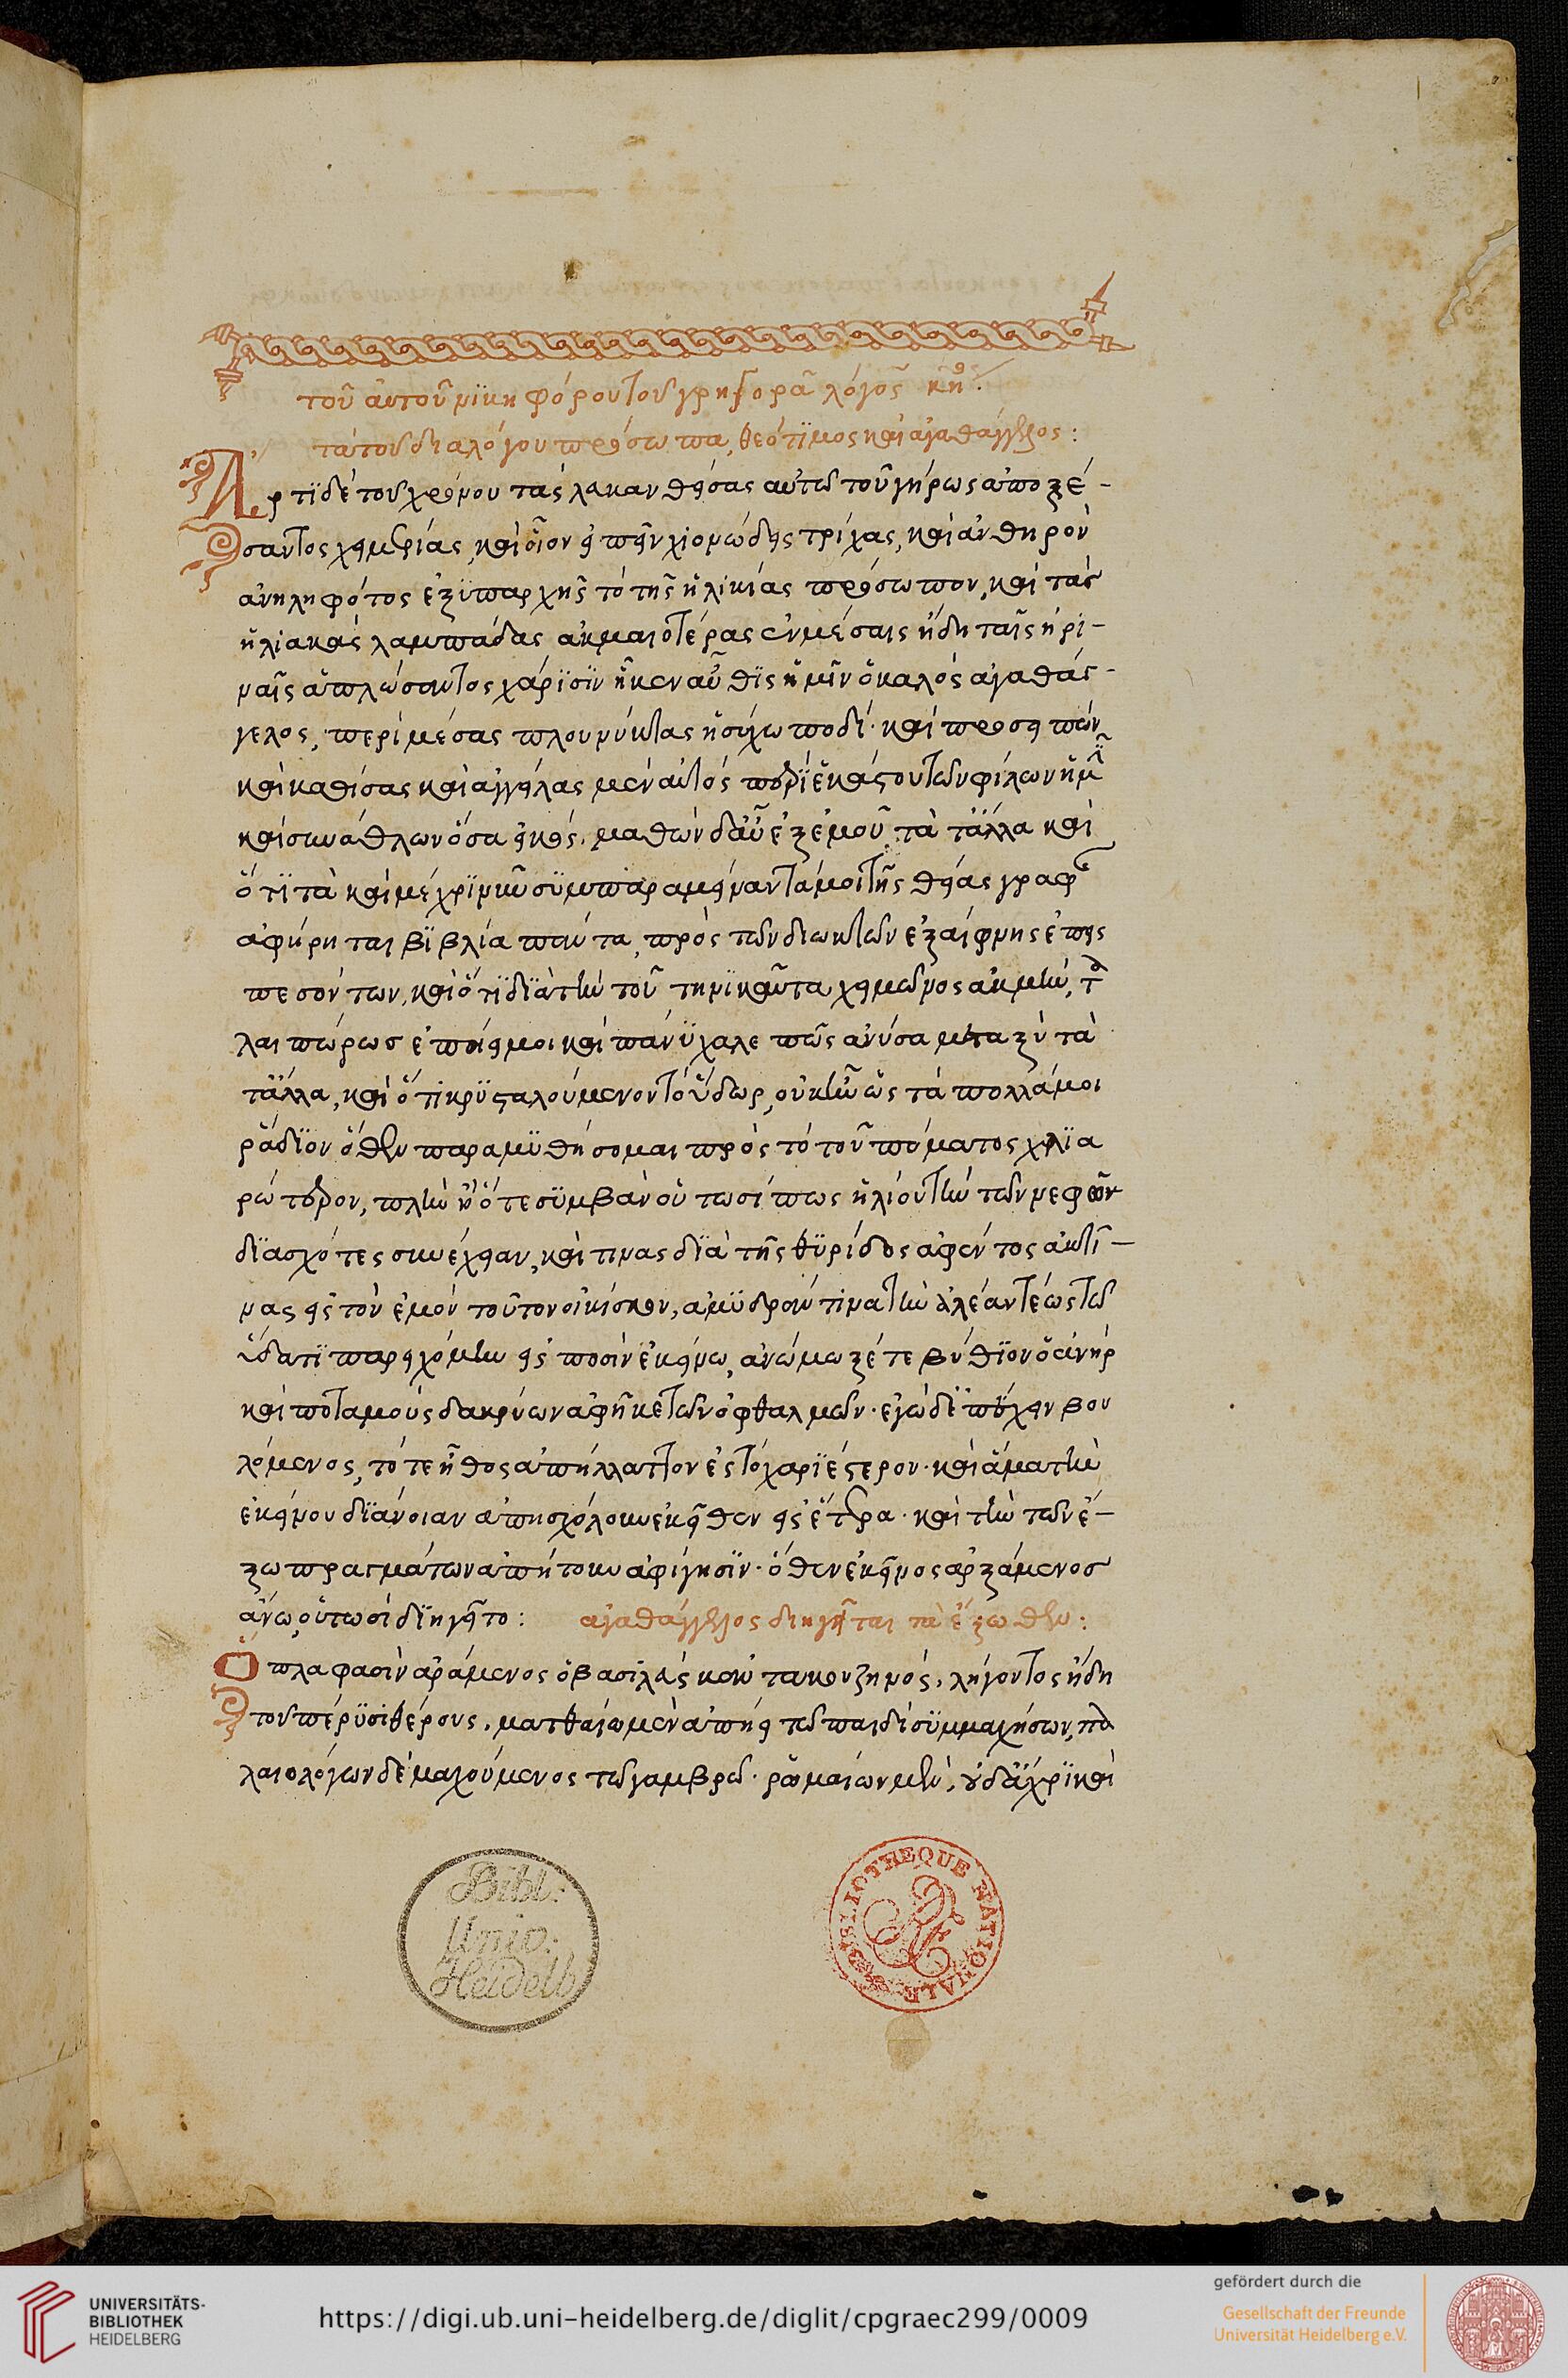 τοῦ αὐτοῦ νικηφόρου τοῦ γρηγορᾶ λόγος κη^ος
τὰ τοῦ διαλόγου πρόσωπα, θεότιμος καὶ ἀγαθάγγελος:
Ἄρτι δὲ τοῦ χρόνου τὰς λακανθείσας αὐτῶ τοῦ γήρως ἀποξέ-
σαντος χειμερίας, καὶ οἷον εἰπεῖν χιονώδεις τρίχας, καὶ ἀνθηρὸν
ἀνειληφότος ἐξϋπαρχῆς τὸ τῆς ἡλικίας πρόσωπον, καὶ τὰς
ἡλιακὰς λαμπάδας ἀκμαιοτέρας ἐν μέσαις ἤδη ταῖς ἠρι-
ναῖς ἁπλώσαντος χάρισιν ἧκεν αὖθις ἡμῖν ὁ καλὸς ἀγαθάγ-
γελος, περὶ μέσας που νύκτας ἡσύχω ποδί· καὶ προσειπὼν
καὶ καθίσας καὶ ἀγγείλας μὲν αὐτὸς περὶ ἑκάστου τῶν φίλων ἡμῖν
καὶ συνάθλων ὅσα εἰκός, μαθὼν δ' αὖ ἐξ ἐμοῦ τά τ' ἄλλα καὶ
ὅτι τὰ καὶ μέχρι νῦν συμπαραμείναντά μοι τῆς θείας γραφῆς
ἀφήρηται βιβλία πάντα, πρὸς τῶν διωκτῶν ἐξαίφνης ἐπεισ
πεσόντων, καὶ ὅτι διὰ τὴν τοῦ τηνικαῦτα χειμῶνος ἀκμὴν, τα
λαιπώρως ἐποίει μοι καὶ πάνυ χαλεπῶς ἀνύσαι μεταξὺ τὰ
τἄλλα, καὶ ὅτι κρυσταλούμενον τὸ ὕδωρ, οὐκ ἦν ὡς τὰ πολλά μοι
ῥάδιον ὅθεν παραμυθήσομαι πρὸς τὸ τοῦ πόματος χλια
ρώτερον, πλὴν εἴ ποτε συμβὰν οὑτωσί πως ἡλίου τὴν τῶν νεφῶν
διασχόντες συνέχειαν, καί τινας διὰ τῆς θυρίδος ἀφέντος ἀκτῖ-
νας εἰς τὸν ἐμὸν τοῦτον οἰκίσκον, ἀμυδράν τινα τὴν ἀλέαν τέως τῶ
ὕδατι παρειχόμην εἰς πόσιν ἐκείνω, ἀνώμωξέ τε βύθιον ὁ ἀνὴρ
καὶ ποταμοὺς δακρύων ἀφῆκε τῶν ὀφθαλμῶν· ἐγὼ δ' ἐπέχειν βου
λόμενος, τό τε ἦθος ἀπήλλαττον ἐς τὸ χαριέστερον· καὶ ἅμα τὴν
ἐκείνου διάνοιαν ἀπησχόλουν ἐκεῖθεν εἰς ἕτερα· καὶ τὴν τῶν ἔ-
ξω πραγμάτων ἀπῄτουν ἀφήγησιν· ὅθεν ἐκεῖνος ἀρξάμενος
ἄνω, οὑτωσὶ διηγεῖτο: ἀγαθάγγελος διηγεῖται τὰ ἔξωθεν:
Ὅπλα φασὶν ἀράμενος ὁ βασιλεὺς καντακουζηνός, λήγοντος ἤδη
τοῦ πέρυσι θέρους, ματθαίω μὲν ἀπῄει τῶ παιδὶ συμμαχήσων, πα
λαιολόγων δὲ μαχούμενος τῶ γαμβρῶ· ῥωμαίων μὲν, οὐδ' ἄχρι καὶ
Bibl:
Univ:
Heidelb
BIBLIOTHEQUE NATIONALE
UNIVERSITÄTS-
BIBLIOTHEK
HEIDELBERG
https://digi.ub.uni-heidelberg.de/diglit/cpgraec299/0009
gefördert durch die
Gesellschaft der Freunde
Universität Heidelberg e.V.